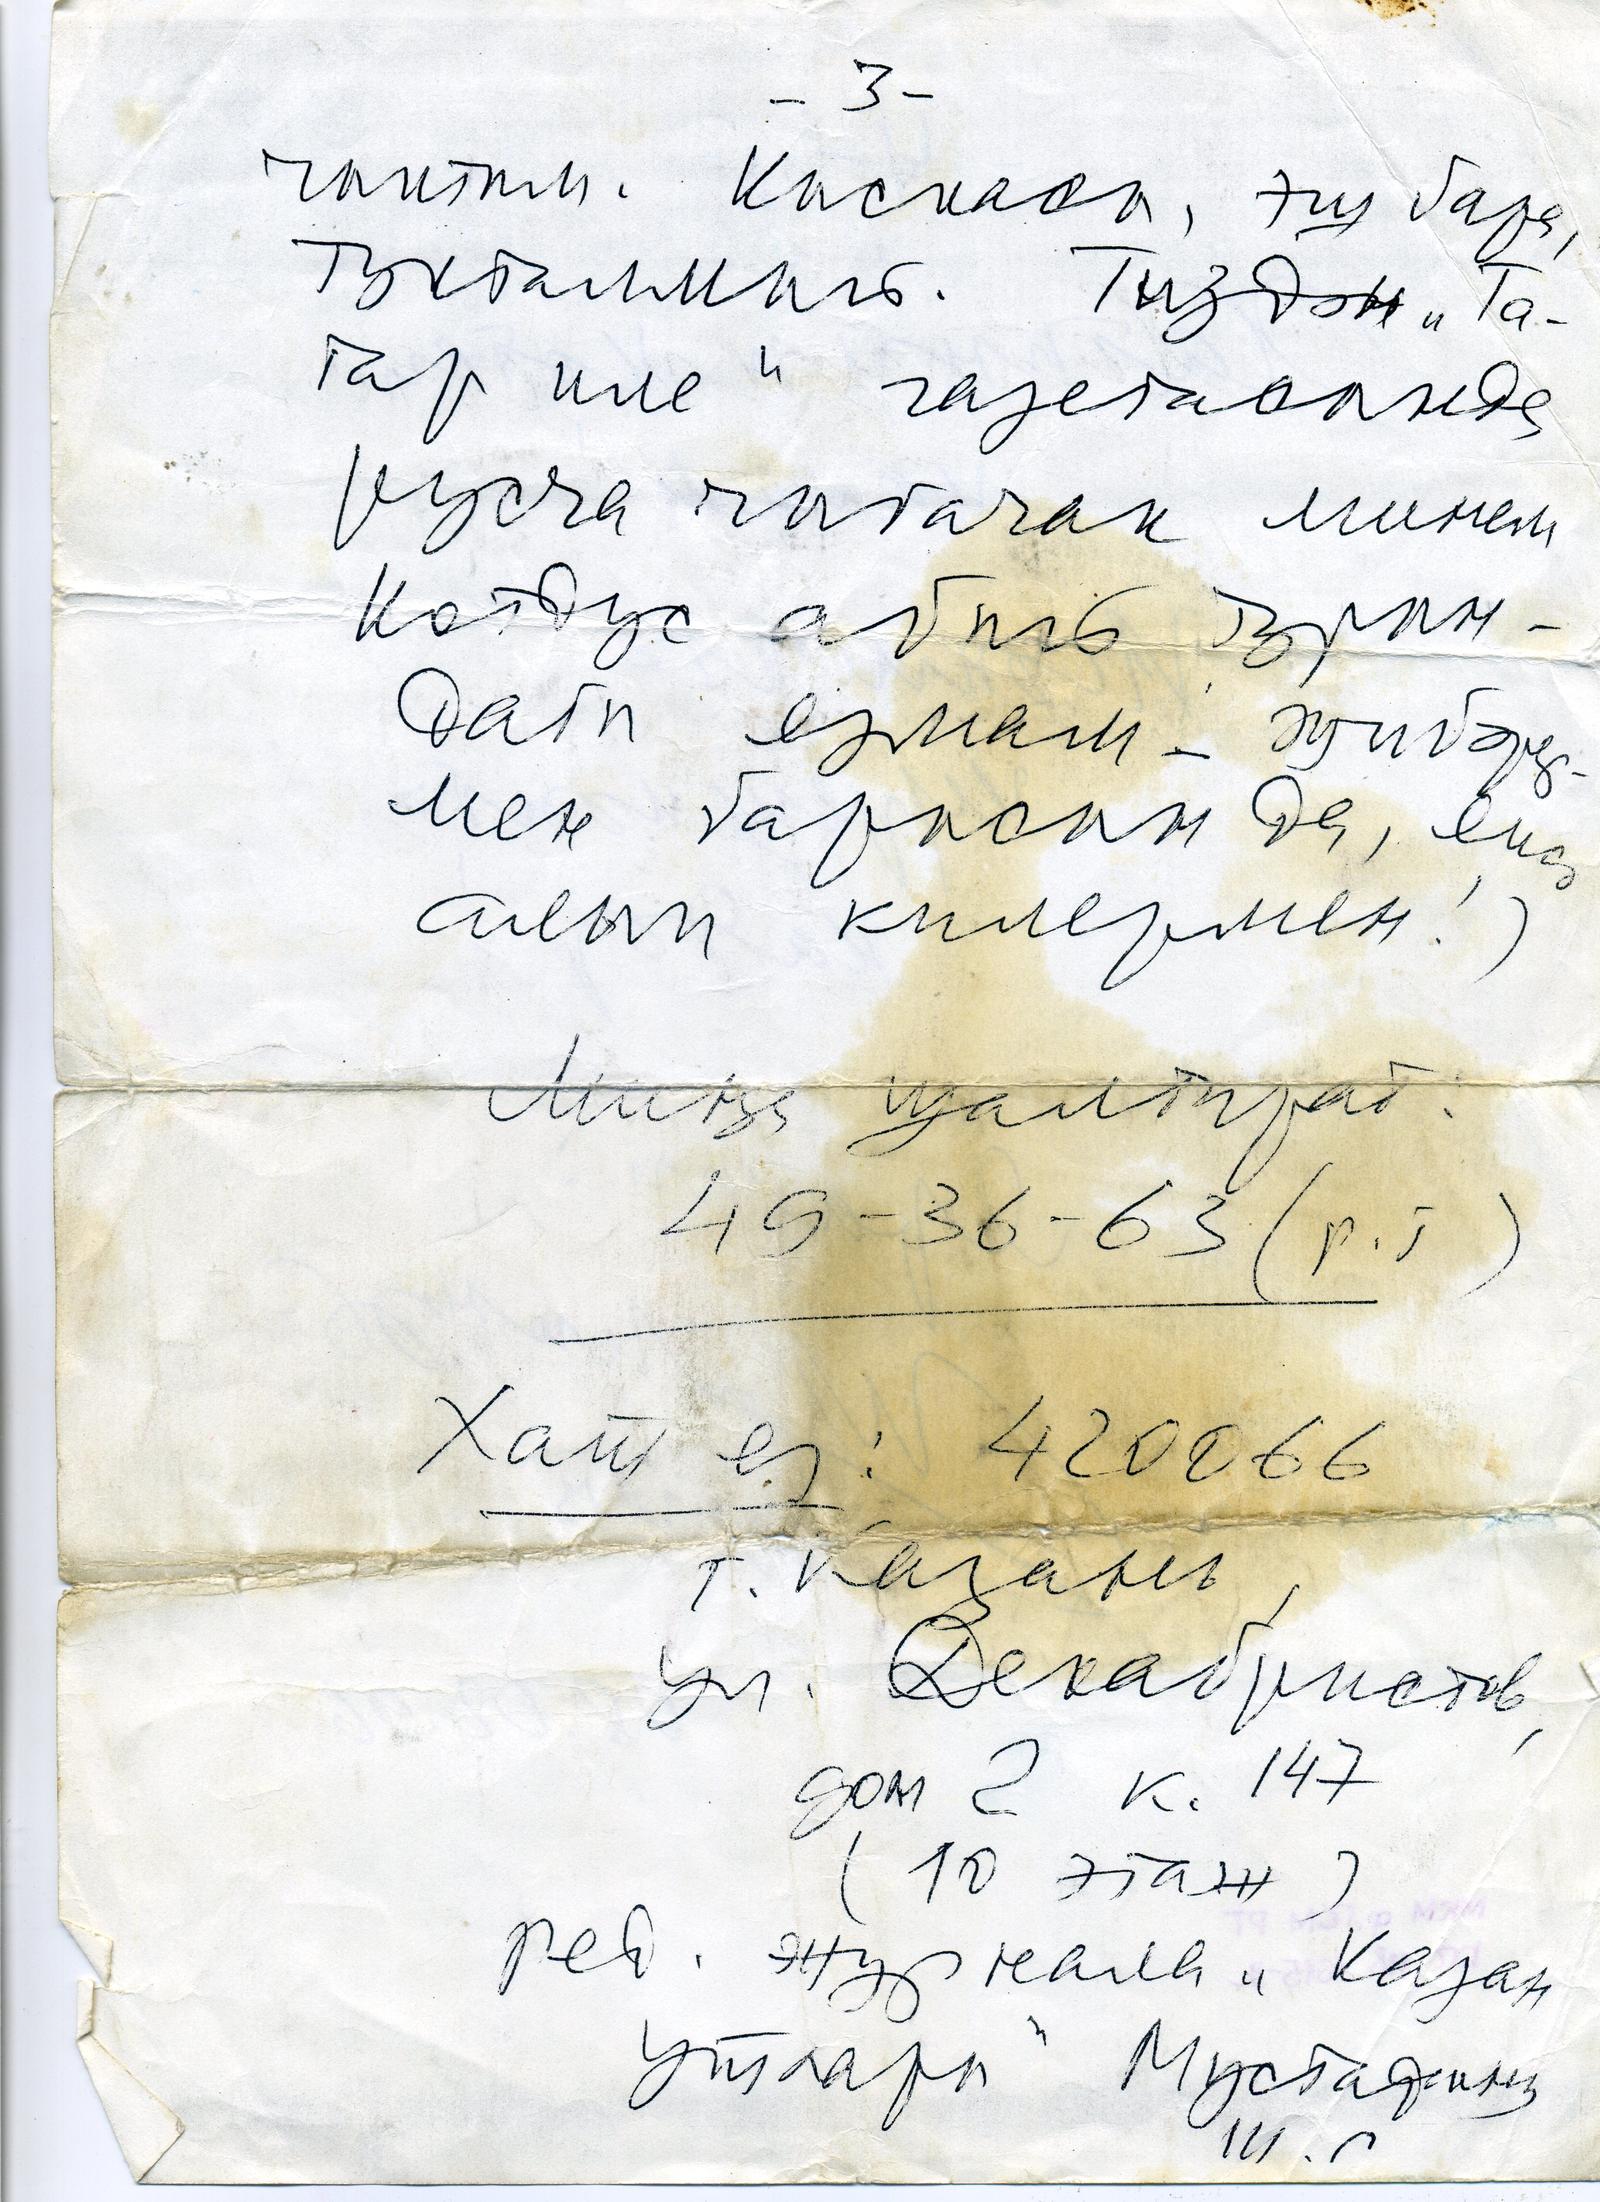 - 3 -
чыктым. Кыскасы, эш бара,
туктаммый. Тиздән „Та-
тар иле" газетасында
русча чыгачак минем
Котдус абый турын-
дагы язмам – җибәрер-
мен барысын да, яисә
алып килермен!)
Миңа шалтырат:
49-36-63 (р.т)
Хат яз: 420066
г. Казань,
ул. Декабристов,
дом 2 к. 147
(10 этаж)
ред. журнала „Казан
утлары" Мустафину
Ш. Г